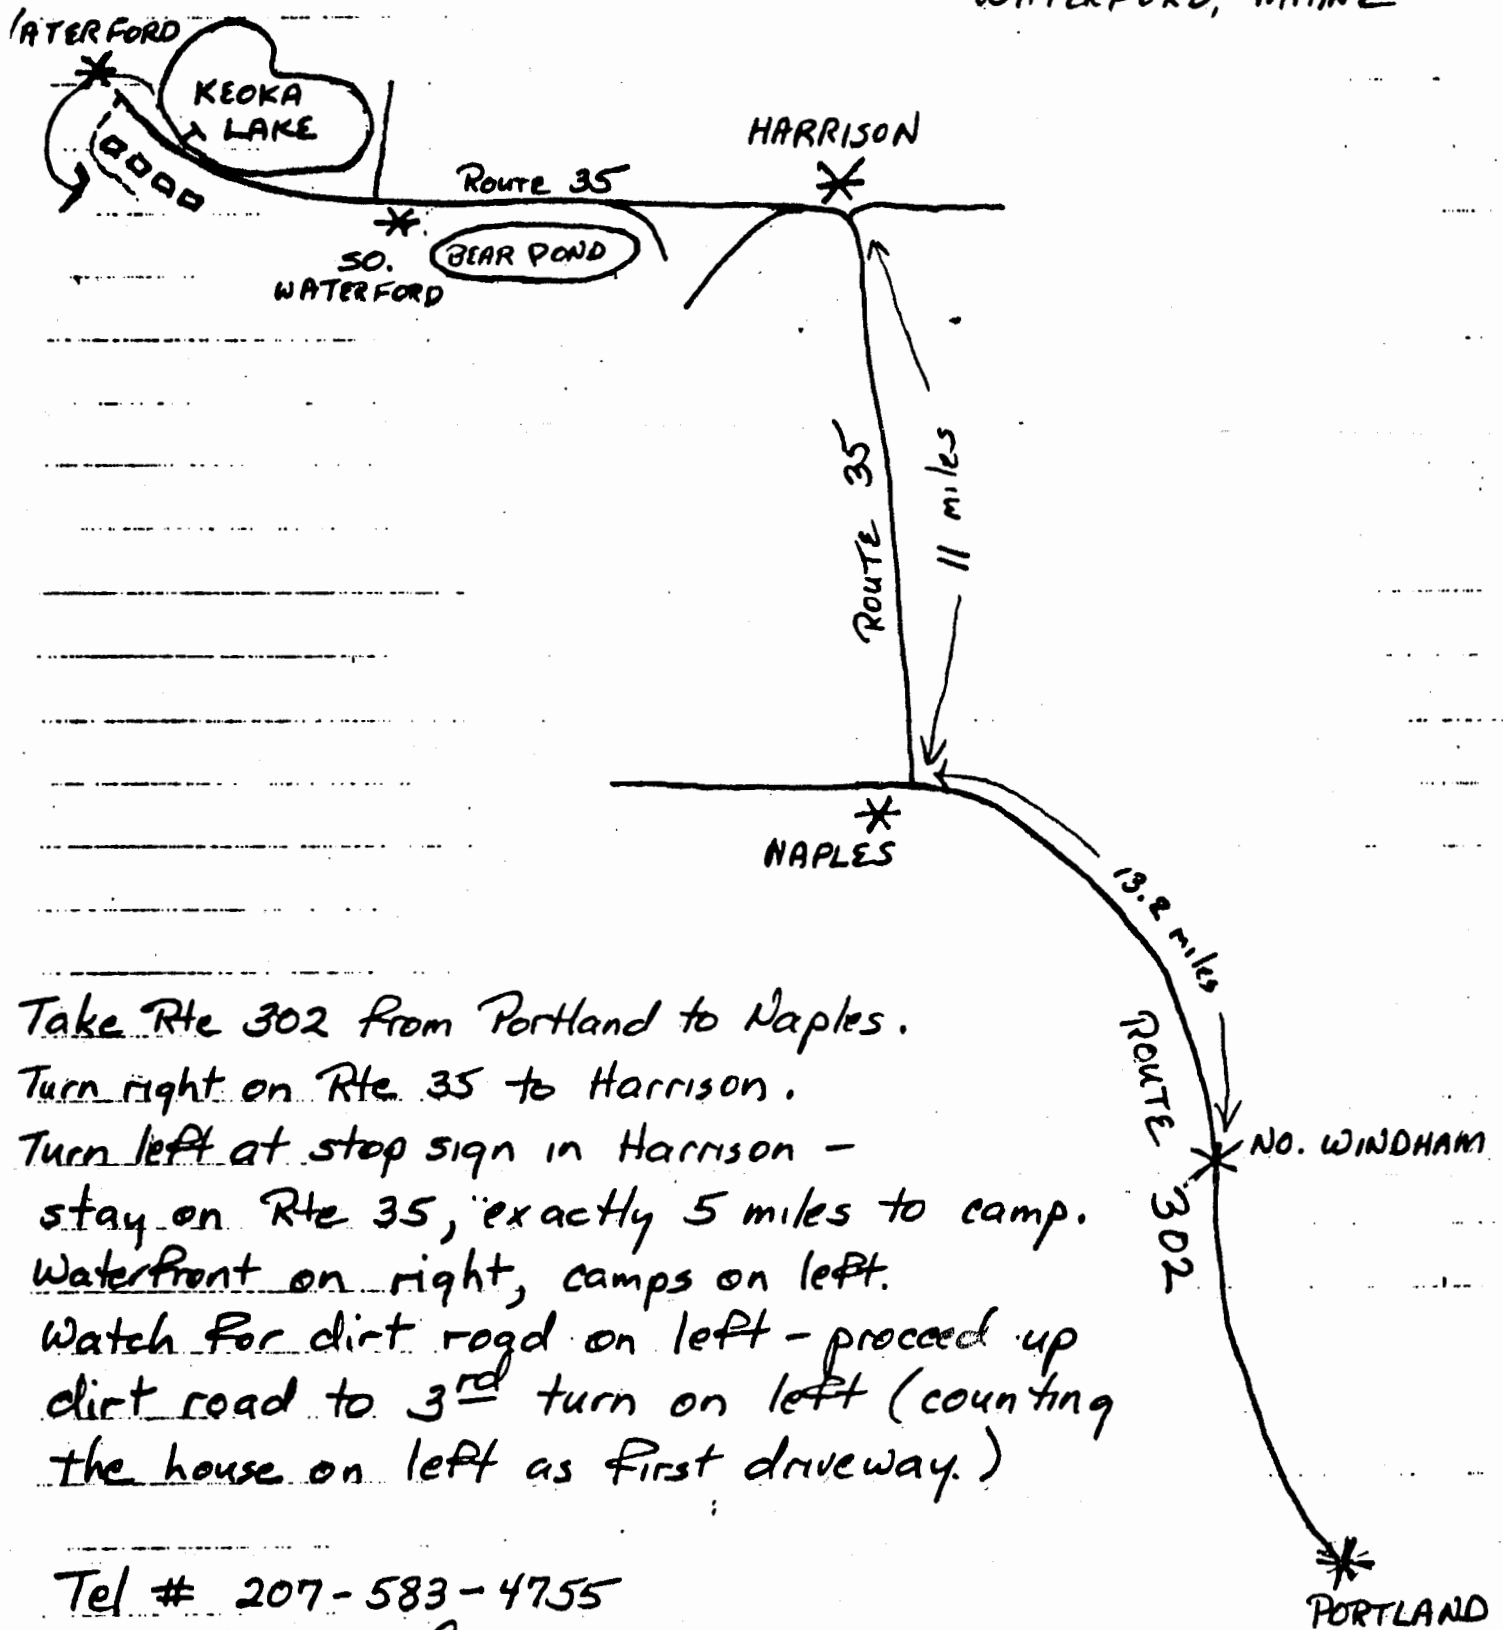 WATERFORD, MAINE
WATERFORD
KEOKA
LAKE
HARRISON
Route 35
SO.
WATERFORD
BEAR POND
ROUTE 35
11 miles
NAPLES
13.2 miles
ROUTE 302
NO. WINDHAM
Take Rte 302 from Portland to Naples.
Turn right on Rte 35 to Harrison.
Turn left at stop sign in Harrison -
stay on Rte 35, exactly 5 miles to camp.
Waterfront on right, camps on left.
Watch for dirt road on left - proceed up
dirt road to 3rd turn on left (counting
the house on left as first driveway.)
Tel # 207-583-4755
PORTLAND